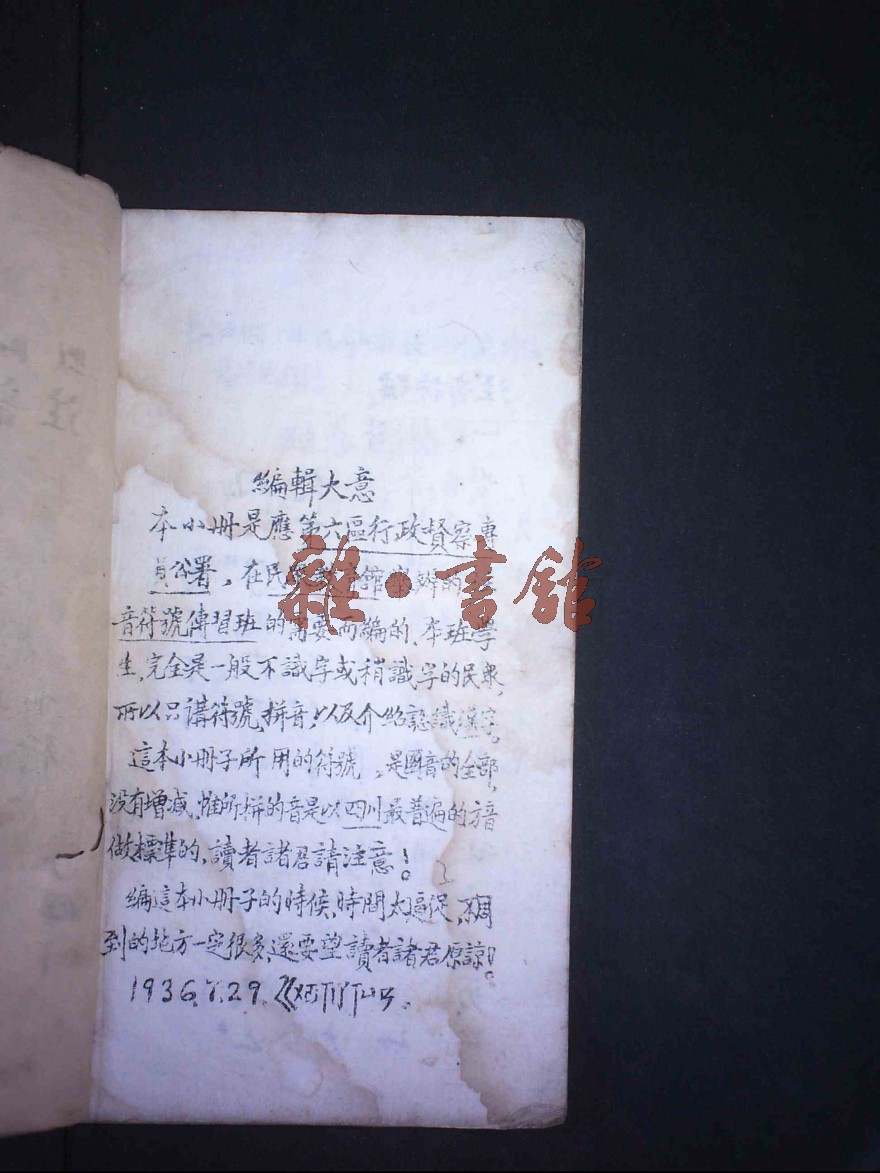 編輯大意
本小册是應第六區行政督察專
員公署，在民眾教育館舉辦的注
音符號傳習班的需要而編的，本班學
生，完全是一般不識字或稍識字的民衆，
所以只講符號，拼音，以及介紹認識漢字。
這本小册子所用的符號，是國音的全部，
没有增減，惟所拼的音是以四川最普遍的方音
做標準的，讀者諸君請注意！
編這本小册子的時候，時間太逼促，不周
到的地方一定很多，還要望讀者諸君原諒！
1936.
29.
雜·書館